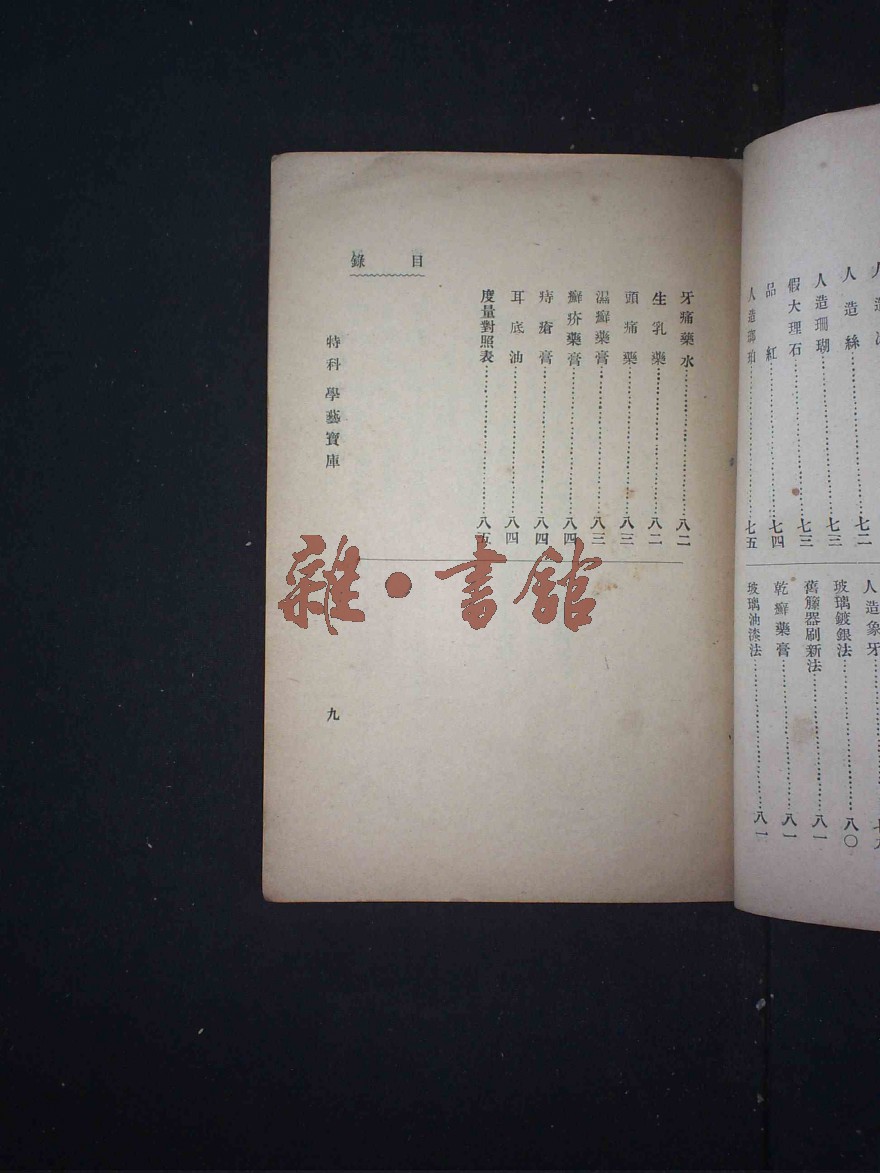 人造絲……七二
人造珊瑚……七三
假大理石……七三
品紅……七四
人造瑯珀……七五
人造象牙
玻璃鍍銀法……八〇
舊籐器刷新法……八一
乾癬藥膏……八一
玻璃油漆法……八一
目錄
牙痛藥水……八二
生乳藥……八二
頭痛藥……八三
濕癬藥膏……八三
癬疥藥膏……八四
痔瘡膏……八四
耳底油……八四
度量對照表……八五
特科 學藝寶庫
九
雜·書館